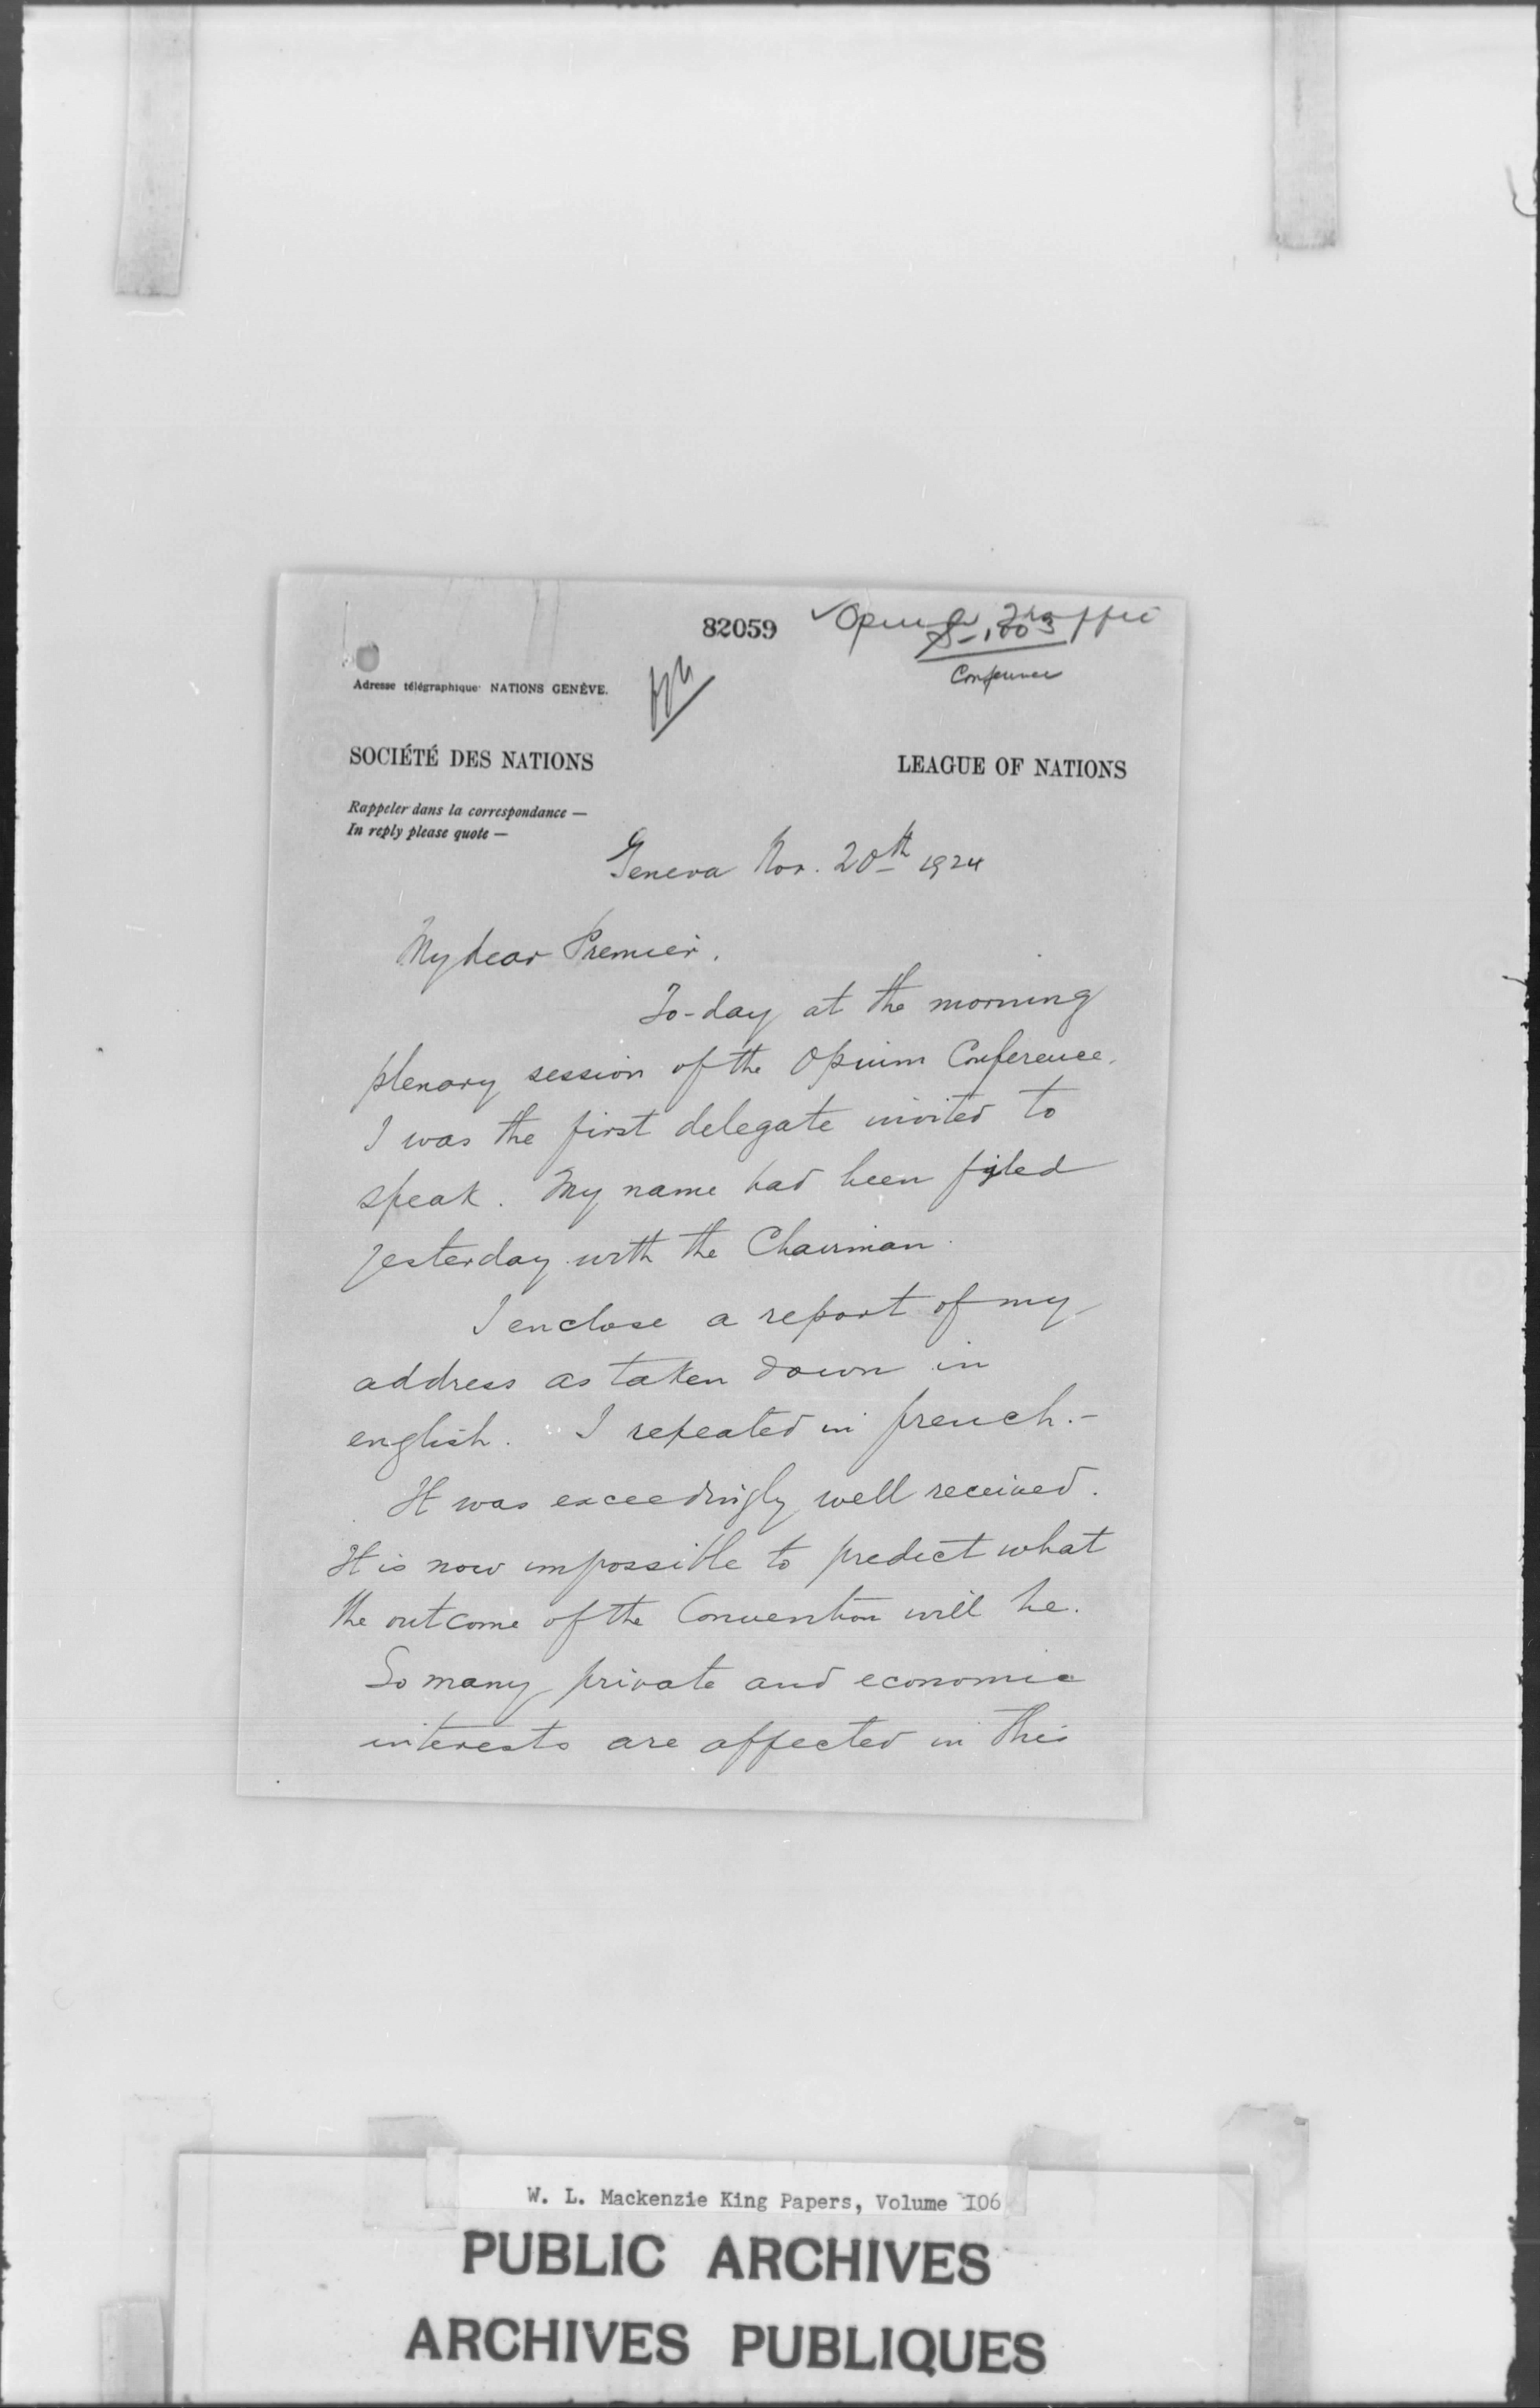 82059
Opium Traffic
S-1003
Conference
Adresse télégraphique: NATIONS GENÈVE.
SOCIÉTÉ DES NATIONS
LEAGUE OF NATIONS
Rappeler dans la correspondance —
In reply please quote —
Geneva Nov. 20th 1924
My dear Premier.
To-day at the morning
plenary session of the Opium Conference.
I was the first delegate invited to
speak. My name had been filed
yesterday with the Chairman.
I enclose a report of my
address as taken down in
english. I repeated in french.-
It was exceedingly well received.
It is now impossible to predict what
the outcome of the Convention will be.
So many private and economic
interests are affected in this
W. L. Mackenzie King Papers, Volume 106
PUBLIC ARCHIVES
ARCHIVES PUBLIQUES